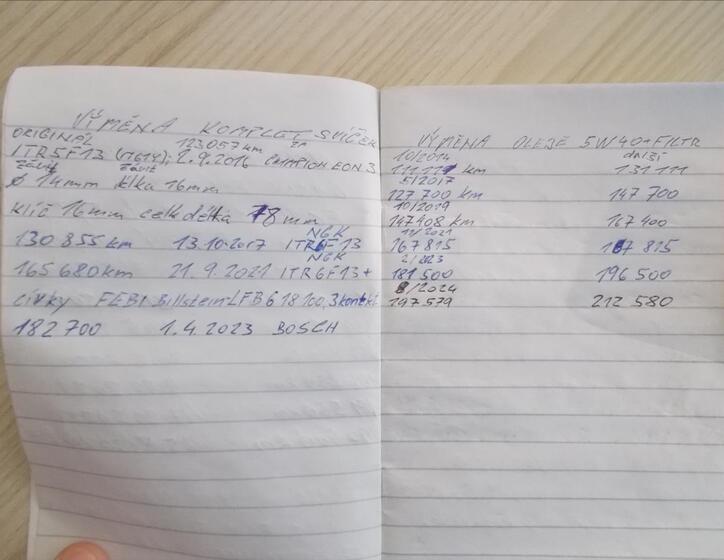 VÝMĚNA KOMPLET SVÍČEK
ORIGINÁL 123 057 km ZA
ITR5F13 (17614); 2.9.2016 CHAMPION EON 3
závit závit
ø 14mm délka 16mm
klíč 16mm celk délka 78 mm
NGK
130 855 km 13.10.2017 ITR6F13
NGK
165 680km 21.9.2021 ITR6F13+
cívky FEBI Billstein LFB618100, 3 kontakt.
182 700 1.4.2023 BOSCH
VÝMĚNA OLEJE 5W40+FILTR
10/2014 další
111 111 km 131 111
5/2017
127 700 km 147 700
10/2019
147 408 km 167 400
11/2021
167 815 187 815
2/2023
181 500 196 500
8/2024
197 579 212 580